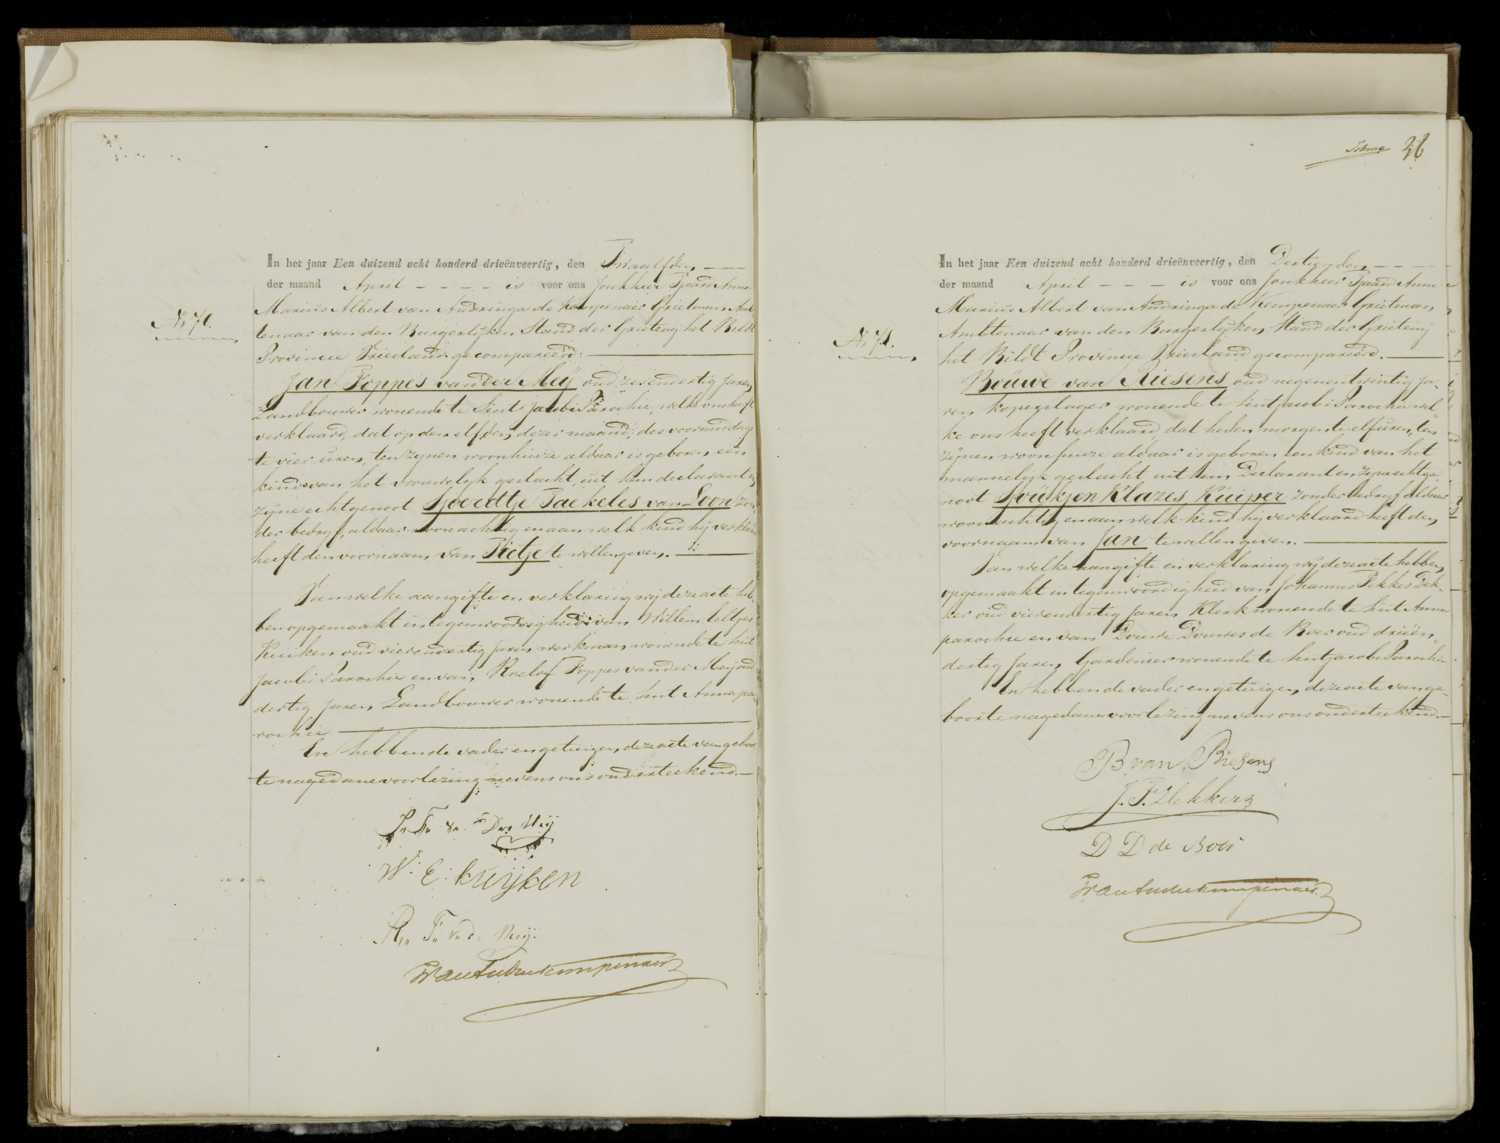 In het jaar Een duizend acht honderd drieënveertig, den Twaalfden
der maand April is voor ons Jonkheer Tjaard Anne
Marius Albert van Andringa de Kempenaer Grietman, Amb
tenaar van den Burgerlijken Stand der Grietenij het Bildt
Provincie Friesland, gecompareerd:
No 70.
Jan Foppes van der Meij oud zesendertig Jaren,
Landbouwer wonende te Sint Jacobi Parochie, welke ons heeft
verklaard, dat op den elfden dezer maand, des voormiddags
te vier uren, ten zijnen woonhuize aldaar is geboren, een
kind van het vrouwelijk geslacht, uit hem declarant en
zijne echtgenoot Sjoerdtje Taekeles van Loon zon
der bedrijf, aldaar woonachtig en aan welk kind hij verklaard
heeft den voornaam van Tietje te willen geven.
Van welke aangifte en verklaring wij deze acte heb
ben opgemaakt in tegenwoordigheid van Willem Eeltjes
Kuiken oud vierenveertig Jaren, werkman, wonende te Sint
Jacobi Parochie en van Roelof Foppes van der Meij oud
dertig Jaren, Landbouwer wonende te Sint Anna pa
rochie
En hebben de vader en getuigen, deze acte van geboor
te na gedane voorlezing nevens ons onderteekend.
J. F. van Der Meij
W. E. kuijken
R. F. v. d. Meij.
TvanAndrKempenaer
36
In het jaar Een duizend acht honderd drieënveertig, den Dertienden
der maand April is voor ons Jonkheer Tjaard Anne
Marius Albert van Andringa de Kempenaer Grietman,
Ambtenaar van den Burgerlijken Stand der Grietenij
het Bildt Provincie Friesland gecompareerd.
No 71.
Bouwe van Biesens oud negenentwintig Ja-
ren, koperslager wonende te Sint Jacobi Parochie wel
ke ons heeft verklaard, dat heden morgen te elf uren, ten
zijnen woonhuize aldaar is geboren een kind van het
mannelijk geslacht uit hem Declarant en zijne echtge
noot Sjiukjen Klazes Kuiper zonder bedrijf aldaar
woonachtig en aan welk kind hij verklaard heeft den
voornaam van Jan te willen geven.
Van welke aangifte en verklaring wij deze acte hebben,
opgemaakt in tegenwoordigheid van Johannes Fekkes Dek-
ker oud vierendertig Jaren, Klerk wonende te Sint Anna
parochie en van Douwe Douwes de Boer oud drieën
dertig Jaren, Gardenier wonende te Sint Jacobi Parochie
En hebben de vader en getuigen, deze acte van ge-
boorte na gedane voorlezing nevens ons onderteekend.
B van Biesens
J. F. Dekker
D D de Boer
TvanAndrKempenaer